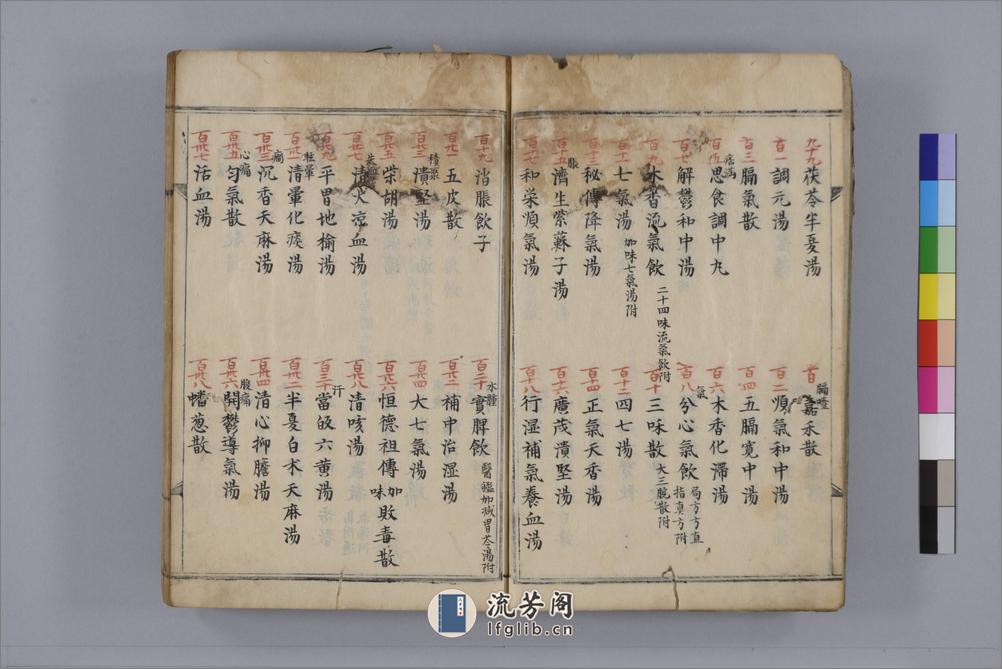 九十九 茯苓半夏湯
膈噎
百 嘉禾散
百一 調元湯
百二 順氣和中湯
百三 膈氣散
百四 五膈寬中湯
痞滿
百五 思食調中丸
百六 木香化滯湯
百七 解鬱和中湯
氣
百八 分心氣飲 局方方直指真方附
百九 木香流氣飲 二十四味流氣飲附
百十 三味散 大三脘散附
百十一 七氣湯 加味七氣湯附
百十二 四七湯
百十三 秘傳降氣湯
百十四 正氣天香湯
脹
百十五 濟生紫蘇子湯
百十六 廣茂潰堅湯
百十七 和栄順氣湯
百十八 行湿補氣養血湯
百十九 消脹飲子
水腫
百二十 實脾飲 醫鑑加减胃苓湯附
百廿一 五皮散
百廿二 補中治湿湯
積聚
百廿三 潰堅湯
百廿四 大七氣湯
百廿五 柴胡湯
百廿六 恒德祖傳加味敗毒散
百廿七 清火凉血湯
百廿八 清咳湯
百廿九 平胃地榆湯
汗
百三十 當皈六黄湯
眩暈
百卅一 清暈化痰湯
百卅二 半夏白朮天麻湯
百卅三 沉香天麻湯
百卅四 清心抑膽湯
心痛
百卅五 匀氣散
腹痛
百卅六 開鬱導氣湯
百卅七 活血湯
百卅八 蟠葱散
流芳阁
lfglib.cn